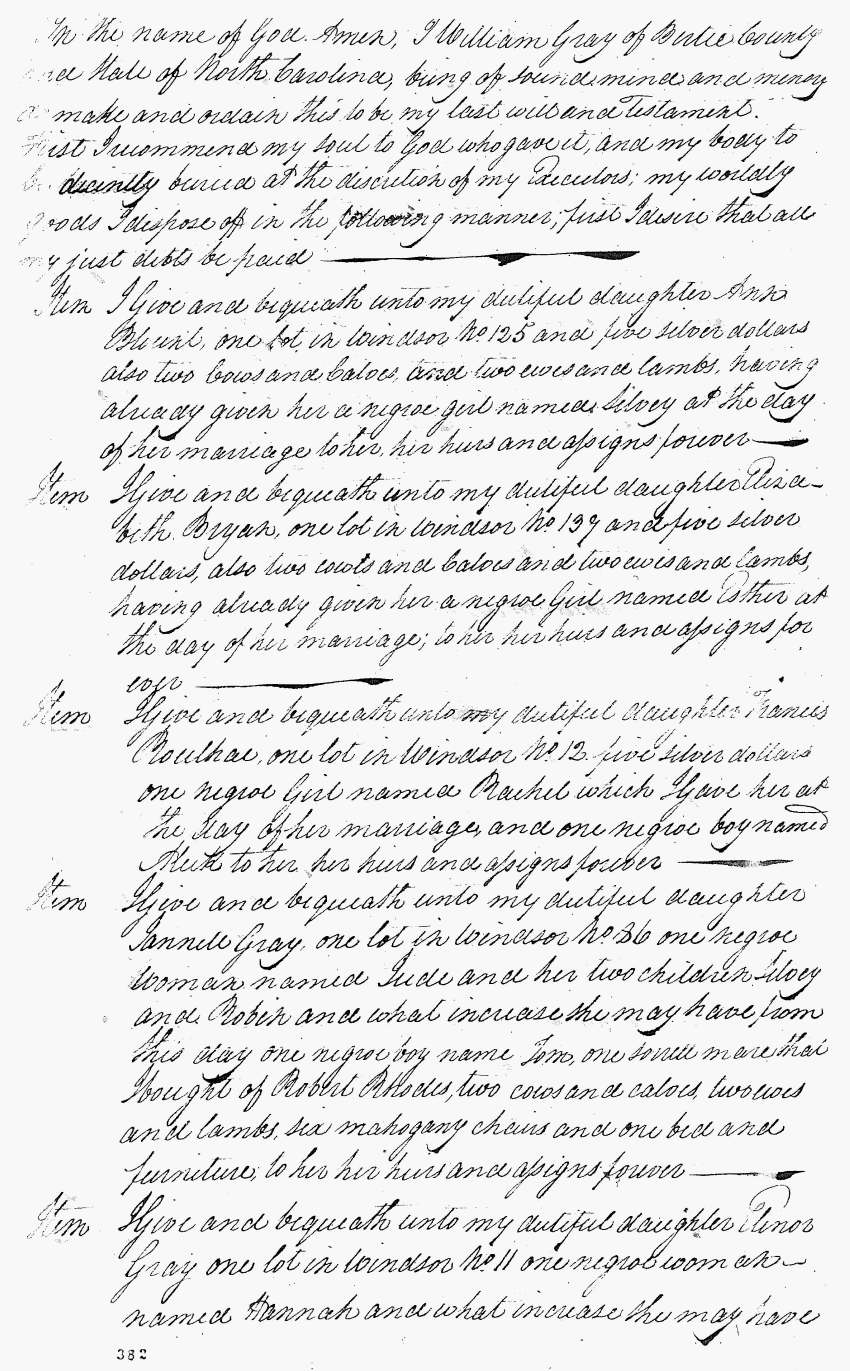 In the name of God. Amen, I William Gray of Bertie County
and State of North Carolina, being of sound mind and memory
do make and ordain this to be my last will and Testament.
First I recommend my soul to God who gave it, and my body to
be decently buried at the discretion of my Executors; my worldly
goods I dispose off in the following manner; first I desire that all
my just debts be paid
Item I Give and bequeath unto my dutiful daughter Ann
Blount, one lot in Windsor No 125 and five silver dollars
also two Cows and Calves, and two ewes and lambs, having
already given her a negroe girl named Silvey at the day
of her marriage to her, her heirs and assigns forever
Item I Give and bequeath unto my dutiful daughter Eliza-
beth Bryan, one lot in Windsor No 137 and five silver
dollars, also two cows and Calves and two ewes and lambs,
having already given her a negroe Girl named Esther at
the day of her marriage; to her her heirs and assigns for
ever
Item I Give and bequeath unto my dutiful daughter Francis
Roulhac, one lot in Windsor No 12 five silver dollars
one negroe Girl named Rachel which I Gave her at
the day of her marriage, and one negroe boy named
to her her heirs and assigns forever
Item I Give and bequeath unto my dutiful daughter
Jannett Gray, one lot in Windsor No 86 one negroe
Woman named Jude and her two children Silvey
and Robin and what increase she may have from
this day one negroe boy name Tom, one sorrell mare that
I bought of Robert Rhodes, two cows and calves, two ewes
and lambs, six mahogany chairs and one bed and
furniture, to her her heirs and assigns forever
Item I Give and bequeath unto my dutiful daughter Elinor
Gray one lot in Windsor No 11 one negroe woman
named Hannah and what increase she may have
382